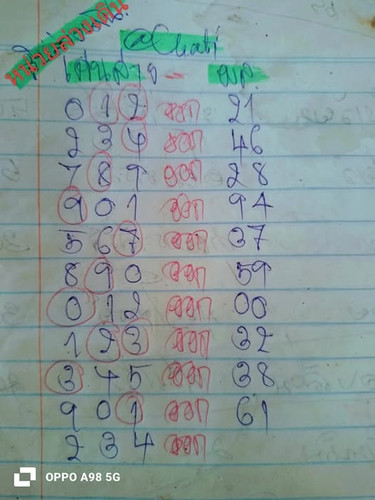 หน่วยสองเดิน
@Chati
เดินสาย - ผล
0 1 2 ออก 21
2 3 4 ออก 46
7 8 9 ออก 28
9 0 1 ออก 94
5 6 7 ออก 37
8 9 0 ออก 59
0 1 2 ออก 00
1 2 3 ออก 32
3 4 5 ออก 38
9 0 1 ออก 61
2 3 4 ออก
OPPO A98 5G